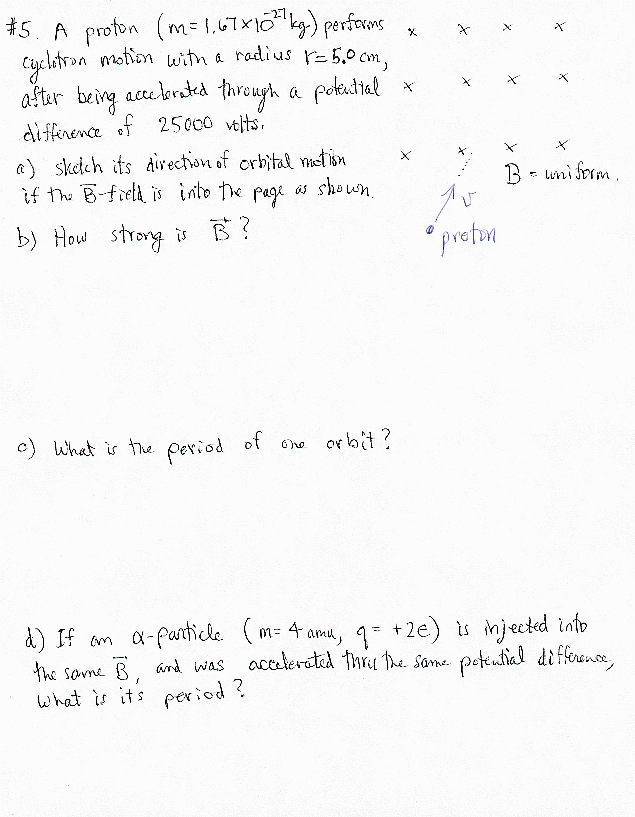 #5. A proton (m = 1.67×10⁻²⁷ kg) performs
cyclotron motion with a radius r = 5.0 cm,
after being accelerated through a potential
difference of 25000 volts.
a) sketch its direction of orbital motion
if the B⃗-field is into the page as shown.
b) How strong is B⃗?
x x x x
x x x x
x x x x
B = uniform.
v
proton
c) What is the period of one orbit?
d) If an α-particle (m = 4 amu, q = +2e) is injected into
the same B⃗, and was accelerated thru the same potential difference,
what is its period?